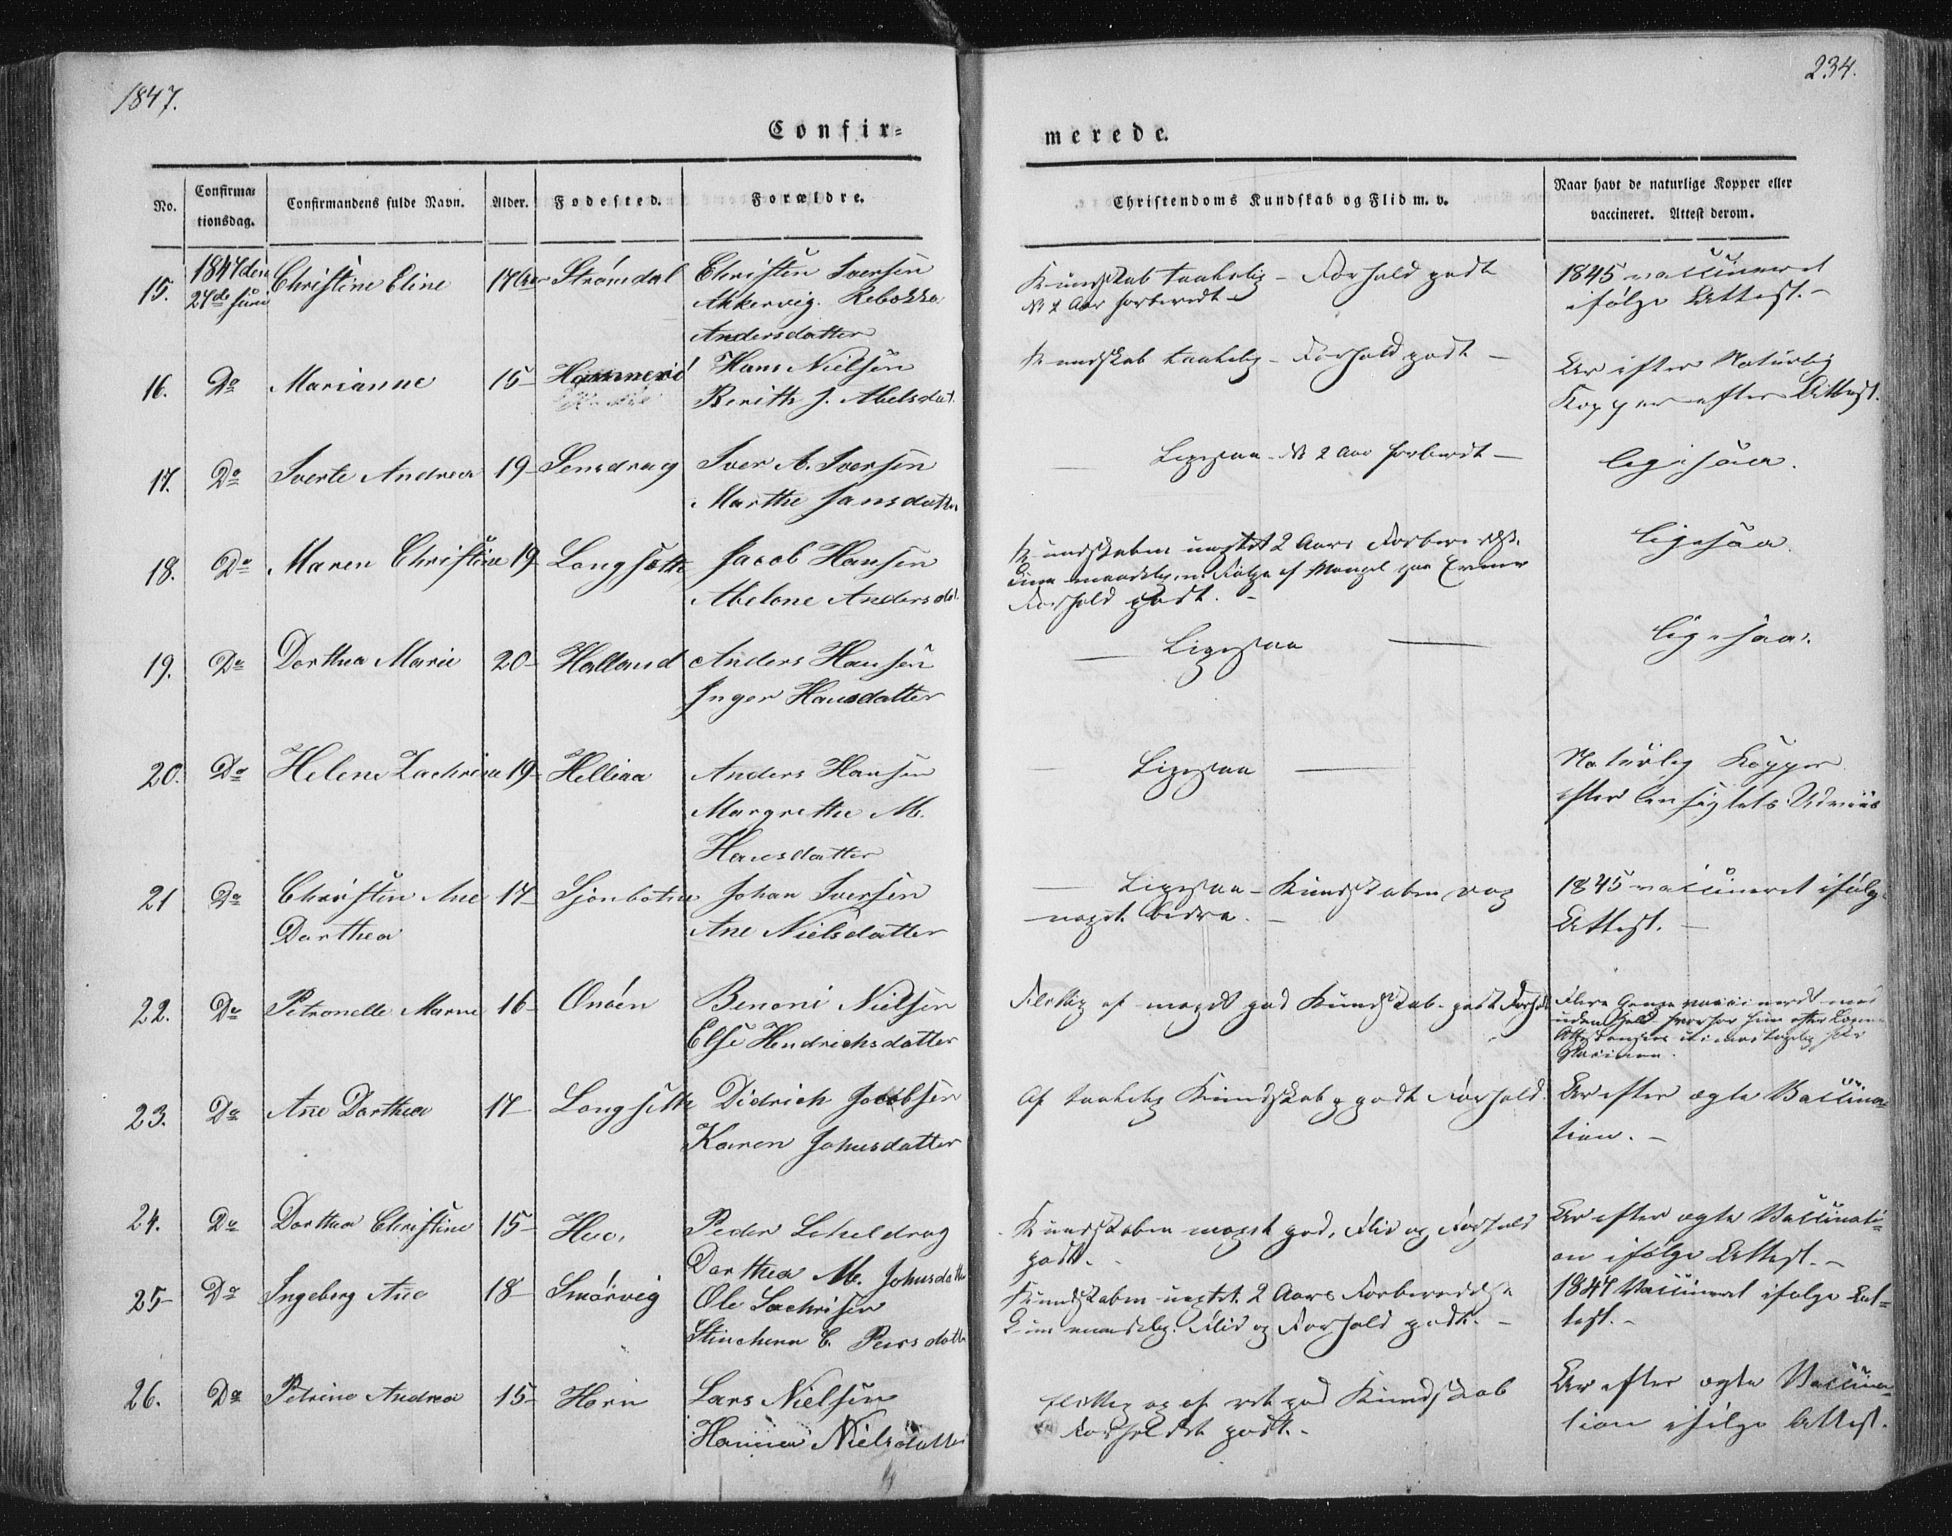 1847.
234.
Confir=
merede.
No.
Confirma=
tionsdag.
Confirmandens fulde Navn.
Alder.
Fodested.
Forældre.
Christendoms Kundskab og Flid m. v.
Naar havt de naturlige Kopper eller
vaccineret. Attest derom.
15. 1847 den Christine Eline 17 Aar Strømdal Christen Iversen
27de Juni Akkervig. Rebekka
Andersdatter
Kundskab taalelig - Forhold godt
2 Aar forberedt -
1845 vaccineret
ifølge Attest. -
16. Do Marianne 15 Hans Nielsen
Berith J. Abelsdat.
Kundskab taalelig - Forhold godt -
Ar efter Naturlig
Kopper efter Attest.
17. Do Iverte Andrea 19 Sensdrag Iver A. Iversen
Marthe Jansdatter
Ligesaa 2 Aar forberedt -
ligesaa.
18. Do Maren Christine 19 Langsæth Jacob Hansen
Abelone Andersdat.
Kundskaben uagtet 2 Aars Forberedelse
maadelig, Følge af Mangel paa Evner
Forhold godt. -
ligesaa.
19. Do Dorthea Marie 20 Halland Anders Hansen
Inger Hansdatter
Ligesaa
ligesaa.
20. Do Helene Zachrine 19 Hellina Anders Hansen
Margrethe M.
Hansdatter
Ligesaa
Naturlig Kopper
efter Ansigtets Udviis
21 Do Christen Ane 17 Sjonbotne Johan Iversen
Dorthea Ane Nielsdatter
Ligesaa - Kundskaben dog
noget bedre. -
1845 vaccineret ifølge
Attest. -
22. Do Petronelle Marne 16 Onøen Benoni Nielsen
Else Hendrichsdatter
Flittig af meget god Kundskab. godt Forhold
Flere Gange vaccineret
uden Held hvorfor hun efter
23. Do Ane Dorthea 17 Langsæth Didrich Jacobsen
Karen Johnsdatter
Af taalelig Kundskab og godt Forhold.
Ar efter ægte Vaccina=
tion. -
24. Do Dorthea Christine 15 Peder Scheldrag
Dorthea M. Johnsdatter
Kundskaben meget god, Flid og Forhold
godt.
Ar efter ægte Vaccinati=
on ifølge Attest. -
25 Do Ingeberg Ane 18 Smørvig Ole Zachrisen
Stinchen C. Peersdatter
Kundskaben uagtet 2 Aars Forberedelse
kun maadelig. Flid og Forhold godt. -
1847 Vaccineret ifølge At=
test. -
26. Do Petrine Andrea 15 Horn Lars Nielsen
Hanna Nielsdatter
Flittig og af ret god Kundskab
Forholdet godt. -
Ar efter ægte Vaccina=
tion ifølge Attest.